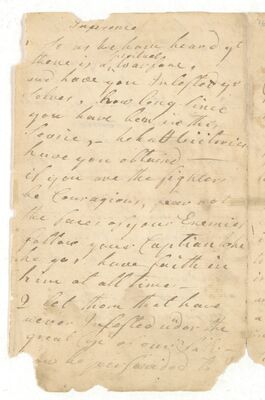 Inprimes
1 So as we have heard yt
spiritual
there is a warfare,
and have you Inlisted yr
selves, how long since
you have been in this
Servic, – what victories
have you obtained –
if you are the fighters
be Couragious, fear not
the faces of your Enemies
follow your Captian one
he gos have faith in
him at all time –
2 let them that have
never Inlisted under the
great Cap of our Sal
now be perswaided to